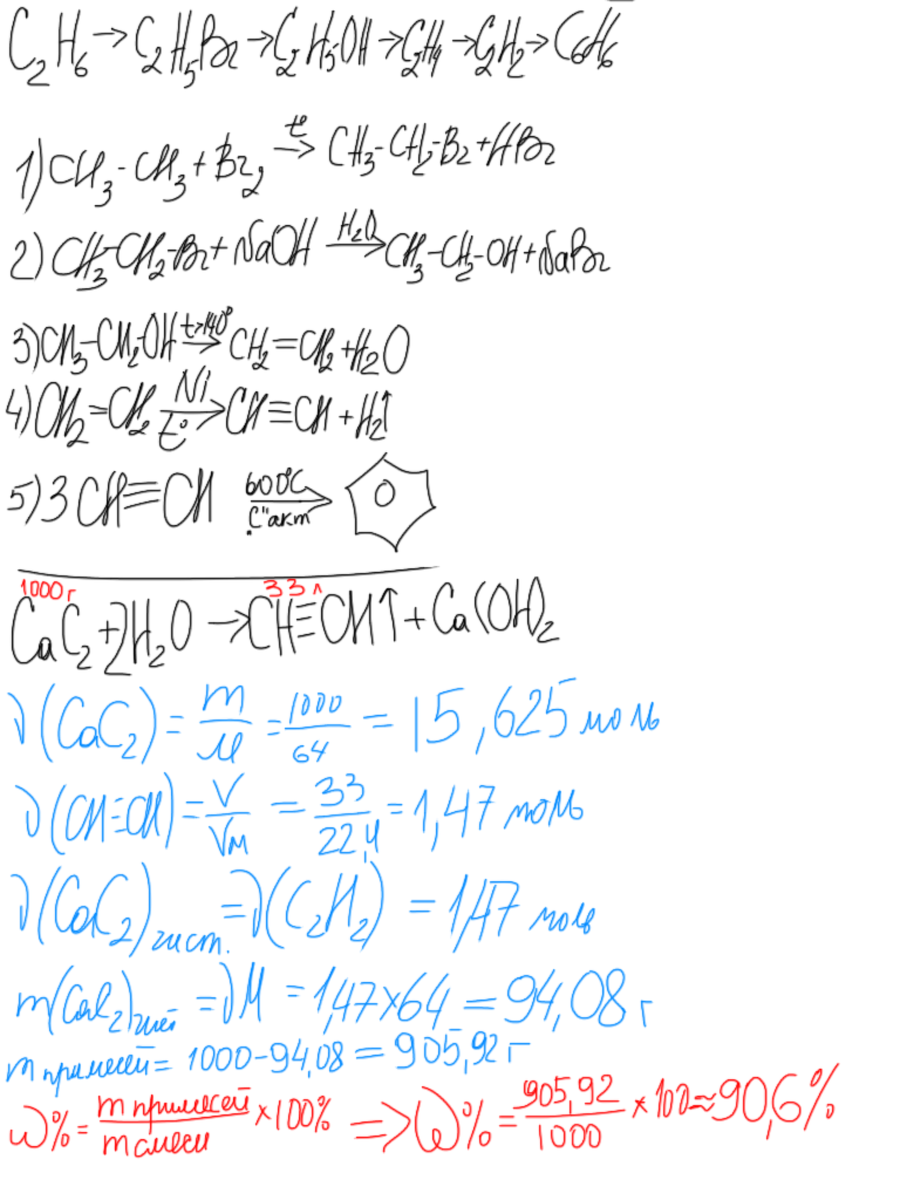 C₂H₆→C₂H₅Br→C₂H₅OH→C₂H₄→C₂H₂→C₆H₆
1) CH₃-CH₃+Br₂ →(t) CH₃-CH₂-Br+HBr
2) CH₃-CH₂-Br+NaOH →(H₂O) CH₃-CH₂-OH+NaBr
3) CH₃-CH₂OH →(t>140°) CH₂=CH₂+H₂O
4) CH₂=CH₂ →(Ni, t°) CH≡CH+H₂↑
5) 3CH≡CH →(600°C, C"акт) O
1000г 33л
CaC₂+2H₂O→CH≡CH↑+Ca(OH)₂
ν(CaC₂)=m/M=1000/64=15,625 моль
ν(CH≡CH)=V/Vм=33/22,4=1,47 моль
ν(CaC₂)чист.=ν(C₂H₂)=1,47 моль
m(CaC₂)=νM=1,47×64=94,08 г
m примесей=1000-94,08=905,92 г
ω%=m примесей/m смеси×100% =>ω%=905,92/1000×100≈90,6%